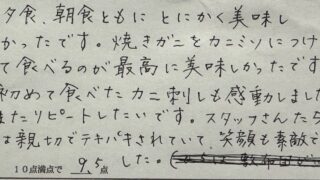 夕食、朝食ともに とにかく美味し
かったです。焼きガニをカニミソにつけ
て食べるのが最高に美味しかったです
初めて食べたカニ刺しも感動しました
またリピートしたいです。スタッフさんたち
は親切でテキパキされていて、笑顔も素敵で
した。
10点満点で 9.5点